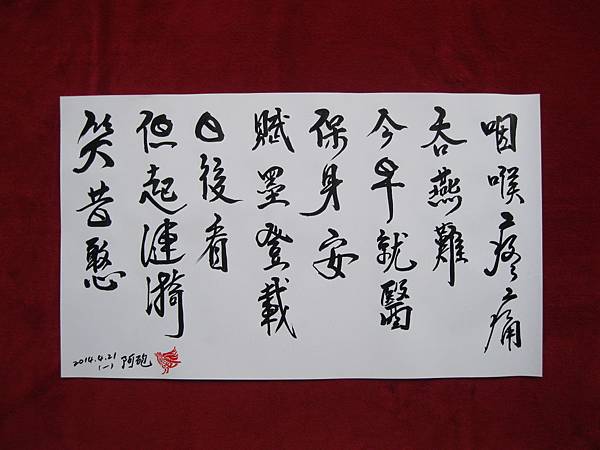 咽喉疼痛
吞燕難
今早就醫
保身安
賦墨登載
日後看
但起漣漪
笑昔憨
2014.4.21
(一) 阿跑